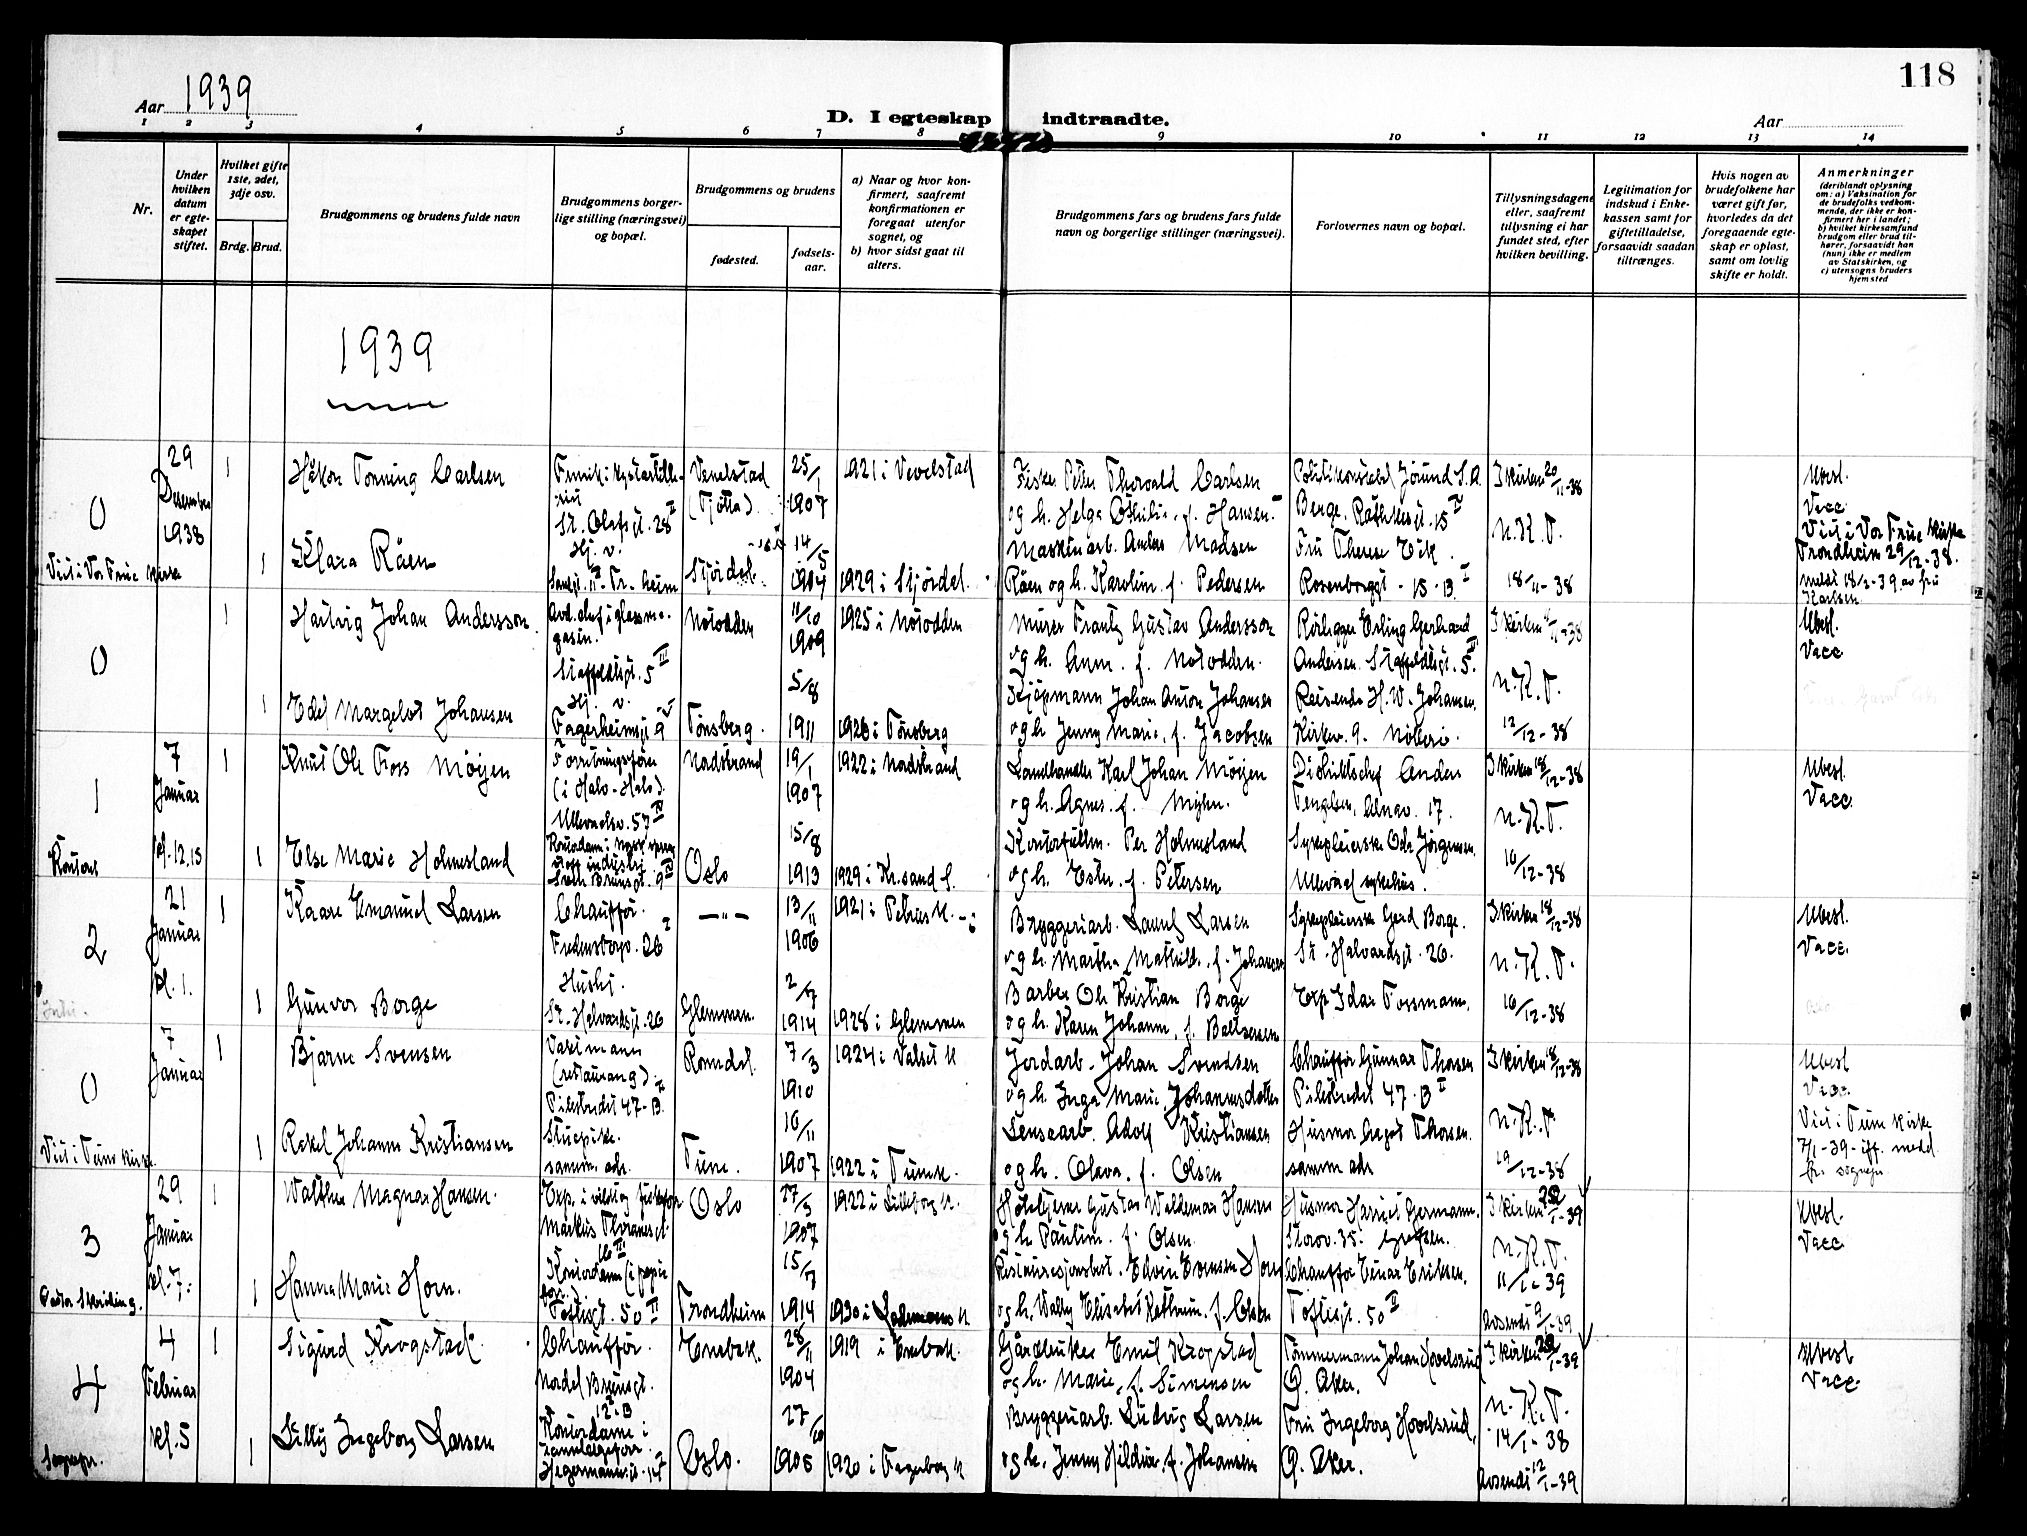 118
Aar 1939
D. I egteskap indtraadte.
Aar
1 2 3 4 5 6 7 8 9 10 11 12 13 14
Nr.
Under hvilken datum er egte-skapet stiftet.
Hvilket gifte 1ste, 2det, 3dje osv.
Brdg. Brud.
Brudgommens og brudens fulde navn
Brudgommens borger-lige stilling (næringsvei) og bopæl.
Brudgommens og brudens
fødested.
fødsels-aar.
a) Naar og hvor kon-firmert, saafremt konfirmationen er foregaat utenfor sognet, og
b) hvor sidst gaat til alters.
Brudgommens fars og brudens fars fulde navn og borgerlige stillinger (næringsvei).
Forlovernes navn og bopæl.
Tillysningsdagene eller, saafremt tillysning ei har fundet sted, efter hvilken bevilling.
Legitimation for indskud i Enke-kassen samt for giftetilladelse, forsaavidt saadan tiltrænges.
Hvis nogen av brudefolkene har været gift før, hvorledes da det foregaaende egte-skap er opløst, samt om lovlig skifte er holdt.
Anmerkninger
(deriblandt oplysning om: a) Vaksination for de brudefolks vedkom-mende, der ikke er kon-firmert her i landet; b) hvilket kirkesamfund brudgom eller brud til-hører, forsaavidt han (hun) ikke er medlem av Statskirken, og c) utensogns bruders hjemsted
1939
0
29 Desember 1938
1
Håkon Tonning Carlsen
St. Olafsgt. 28 II
(Tjøtta)
25/1 1907
1921 i Vevelstad
Fisker Peter Thorvald Carlsen
og h. Helga Othilie f. Hansen
Politikonstabel Jørund S. A.
Berge. Rathkesgt. 15 IV
I kirken 20/11-38
N.K.T.
18/11-38
Ubesl.
Vacc
Viet i Vor Frue Kirke
Trondheim 29/12-38.
Viet i Vor Frue Kirke
1
Klara Råen
Hj. v.
Stjørdal
14/5 1904
1929 i Stjørdal.
Maskinarb. Anders Madsen
Råen og h. Karoline f. Pedersen
Fru Therese Eik.
Rosenborggt. 15 B I
Karlsen
0
1
Hartvig Johan Andersson
Avd.chef i glassma-gasin.
Staffeldtsgt. 5 III
Notodden
11/10 1909
1925 i Notodden
Murer Frantz Gustav Andersson
og h. Anna f. Notodden.
Rørlegger Erling Gerhard
Andersen. Staffeldtsgt. 5.
N.K.T.
12/12-38
Ubesl.
Vacc
1
Edel Margelot Johansen
Hj. v.
Fagerheimsgt. 9
Tønsberg.
5/8 1911
1926 i Tønsberg
Kjøpmann Johan Anton Johansen
og h. Jenny Marie, f. Jacobsen
Reisende H. W. Johansen.
1
7 Januar kl. 12.15
1
Knut Ole Foss Møyen
(i Halv-Halv).
Ullevaalsv. 57 IV
Nordstrand
19/1 1907
1922 i Nordstrand
Landhandler Karl Johan Møyen
og h. Agnes f. Myhre.
Distriktschef Anders
17.
I kirken 18/12-38
N.K.T.
16/12-38
Ubesl
Vacc.
1
Else Marie Holmesland
Oslo
15/8 1913
1929 i Kr.sand S.
Kontorfullm. Per Holmesland
og h. Ester f. Petersen
Sykepleierske Odr Jørgensen.
Ullevaal sykehus.
2
21 Januar kl. 1.
1
Kaare Emanuel Larsen
Chauffør.
—"—
13/11 1906
1921 i Petrus K.
Bryggeriarb. Lauritz Larsen
og h. Martha Mathilde f. Johansen
Sykepleierske Gerd Borge.
St. Halvardsgt. 26.
I kirken 18/12-38
N.K.T.
16/12-38
Ubesl.
Vacc.
1
Gunvor Borge
Hushj.
St. Halvardsgt. 26
Glemmen.
2/7 1914
1928 i Glemmen
Barber Ole Kristian Borge
og h. Karen Johanne, f. Baltsersen
Exp. Idar Tossmann.
0
7 Januar
1
Bjarne Svensen
Varimann
Pilestredet 47-B.
7/3 1910
Jordarb. Johan Svendsen
og h. Inga Marie Johannesdatter
Chauffør Gunnar Thorsen
Pilestredet 47. B I
I kirken 18/12-38
N.K.T.
19/12-38
Ubesl
Vacc.
Viet i Tune Kirke
7/1-39
Viet i Tune Kirke.
1
Rakel Johanne Kristiansen
Stuepike.
samme adr.
Tune.
16/11 1907
1922 i Tune K.
Lensearb. Adolf Kristiansen
og h. Olava f. Olsen
Husmor Aagot Thorsen.
samme adr
3
29 Januar kl. 7.
1
Walther Magnar Hansen.
Oslo
27/3 1907
1922 i Lilleborg K.
Gustav Waldemar Hansen
og h. Pauline f. Olsen
Husmor Harriet Germann.
Storov. 35. Grefsen.
N.K.T.
11/1-39
Avsendt 9/1-39
Ubesl.
Vacc
Pastor Skeiding.
1
Hanna Marie Horn.
Toftesgt. 50 II
Trondheim
15/7 1914
1930 i Lademoens K
Edvin Evensen Horn
og h. Wally Elisabet Kathrine f. Olsen
Chauffør Einar Eriksen.
Toftesgt. 50 II
4
4 Februar kl. 5
1
Sigurd Krogstad.
Chauffør.
Nordal Brunsgt.
12 B
Enebak.
28/11 1904
1919 i Enebak.
Gårdbruker Emil Krogstad
og h. Marie, f. Simensen
Tømmermann Johan Hovelsrud
Ø. Aker.
N.K.T.
14/1-38
Avsendt 12/1-39
Ubesl
Vacc.
Sognepr.
1
Lilly Ingeborg Larsen
Kontordame i
Oslo.
27/10 1905
1920 i Fagerborg K
Bryggeriarb. Ludvig Larsen
og h. Jenny Hildur f. Johansen
Fru Ingeborg Hovelsrud,
Ø. Aker.